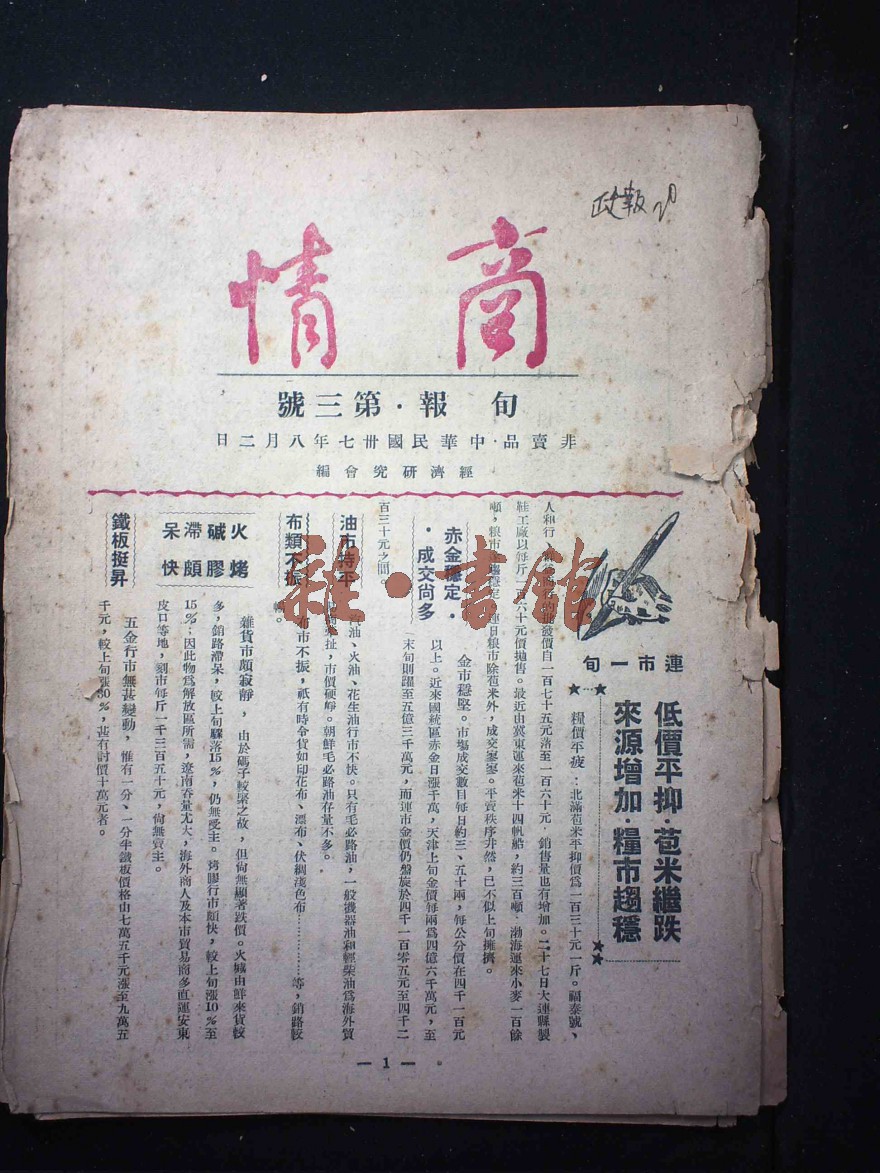 政報
商情
旬報·第三號
非賣品·中華民國卅七年八月二日
經濟研究會編
連市一旬
低價平抑·苞米繼跌
來源增加·糧市趨穩
糧價平疲：北滿苞米平抑價爲一百三十元一斤。福泰號、
人和行、批發價自一百七十五元落至一百六十元，銷售量也有增加。二十七日大連縣製
鞋工廠以每斤一百六十元價拋售。最近由冀東運來苞米十四帆船，約三百噸，渤海運來小麥一百餘
噸，粮市趨穩定，連日粮市除苞米外，成交寥寥。平賣秩序井然，已不似上旬擁擠。
赤金穩定·
·成交尙多
金市穩堅。市場成交數目每日約三、五十兩，每公分價在四千一百元
以上。近來國統區赤金日漲千萬，天津上旬金價每兩爲四億六千萬元，至
末旬則躍至五億三千萬元，而連市金價仍盤旋於四千一百零五元至四千二
百三十元之間。
油市持平
油、火油、花生油行市不快。只有毛必路油，一般機器油和輕柴油爲海外貿
扯，市價硬崢。朝鮮毛必路油存量不多。
布類不振
布市不振，祇有時令貨如印花布、漂布、伏綢淺色布……………等，銷路較
暢。
火碱滯呆
烤膠頗快
雜貨市頗寂靜，由於碼子較緊之故，但尙無顯著跌價。火碱由鮮來貨較
多，銷路滯呆，較上旬驟落15%，仍無受主。烤膠行市頗快，較上旬漲10%至
15%；因此物爲解放區所需，遼南吞量尤大，海外商人及本市貿易商多直運安東
皮口等地，刻市每斤一千三百五十元，尙無賣主。
鐵板挺昇
五金行市無甚變動，惟有一分、一分半鐵板價格由七萬五千元漲至九萬五
千元，較上旬漲30%，甚有討價十萬元者。
— 1 —
雜·書館